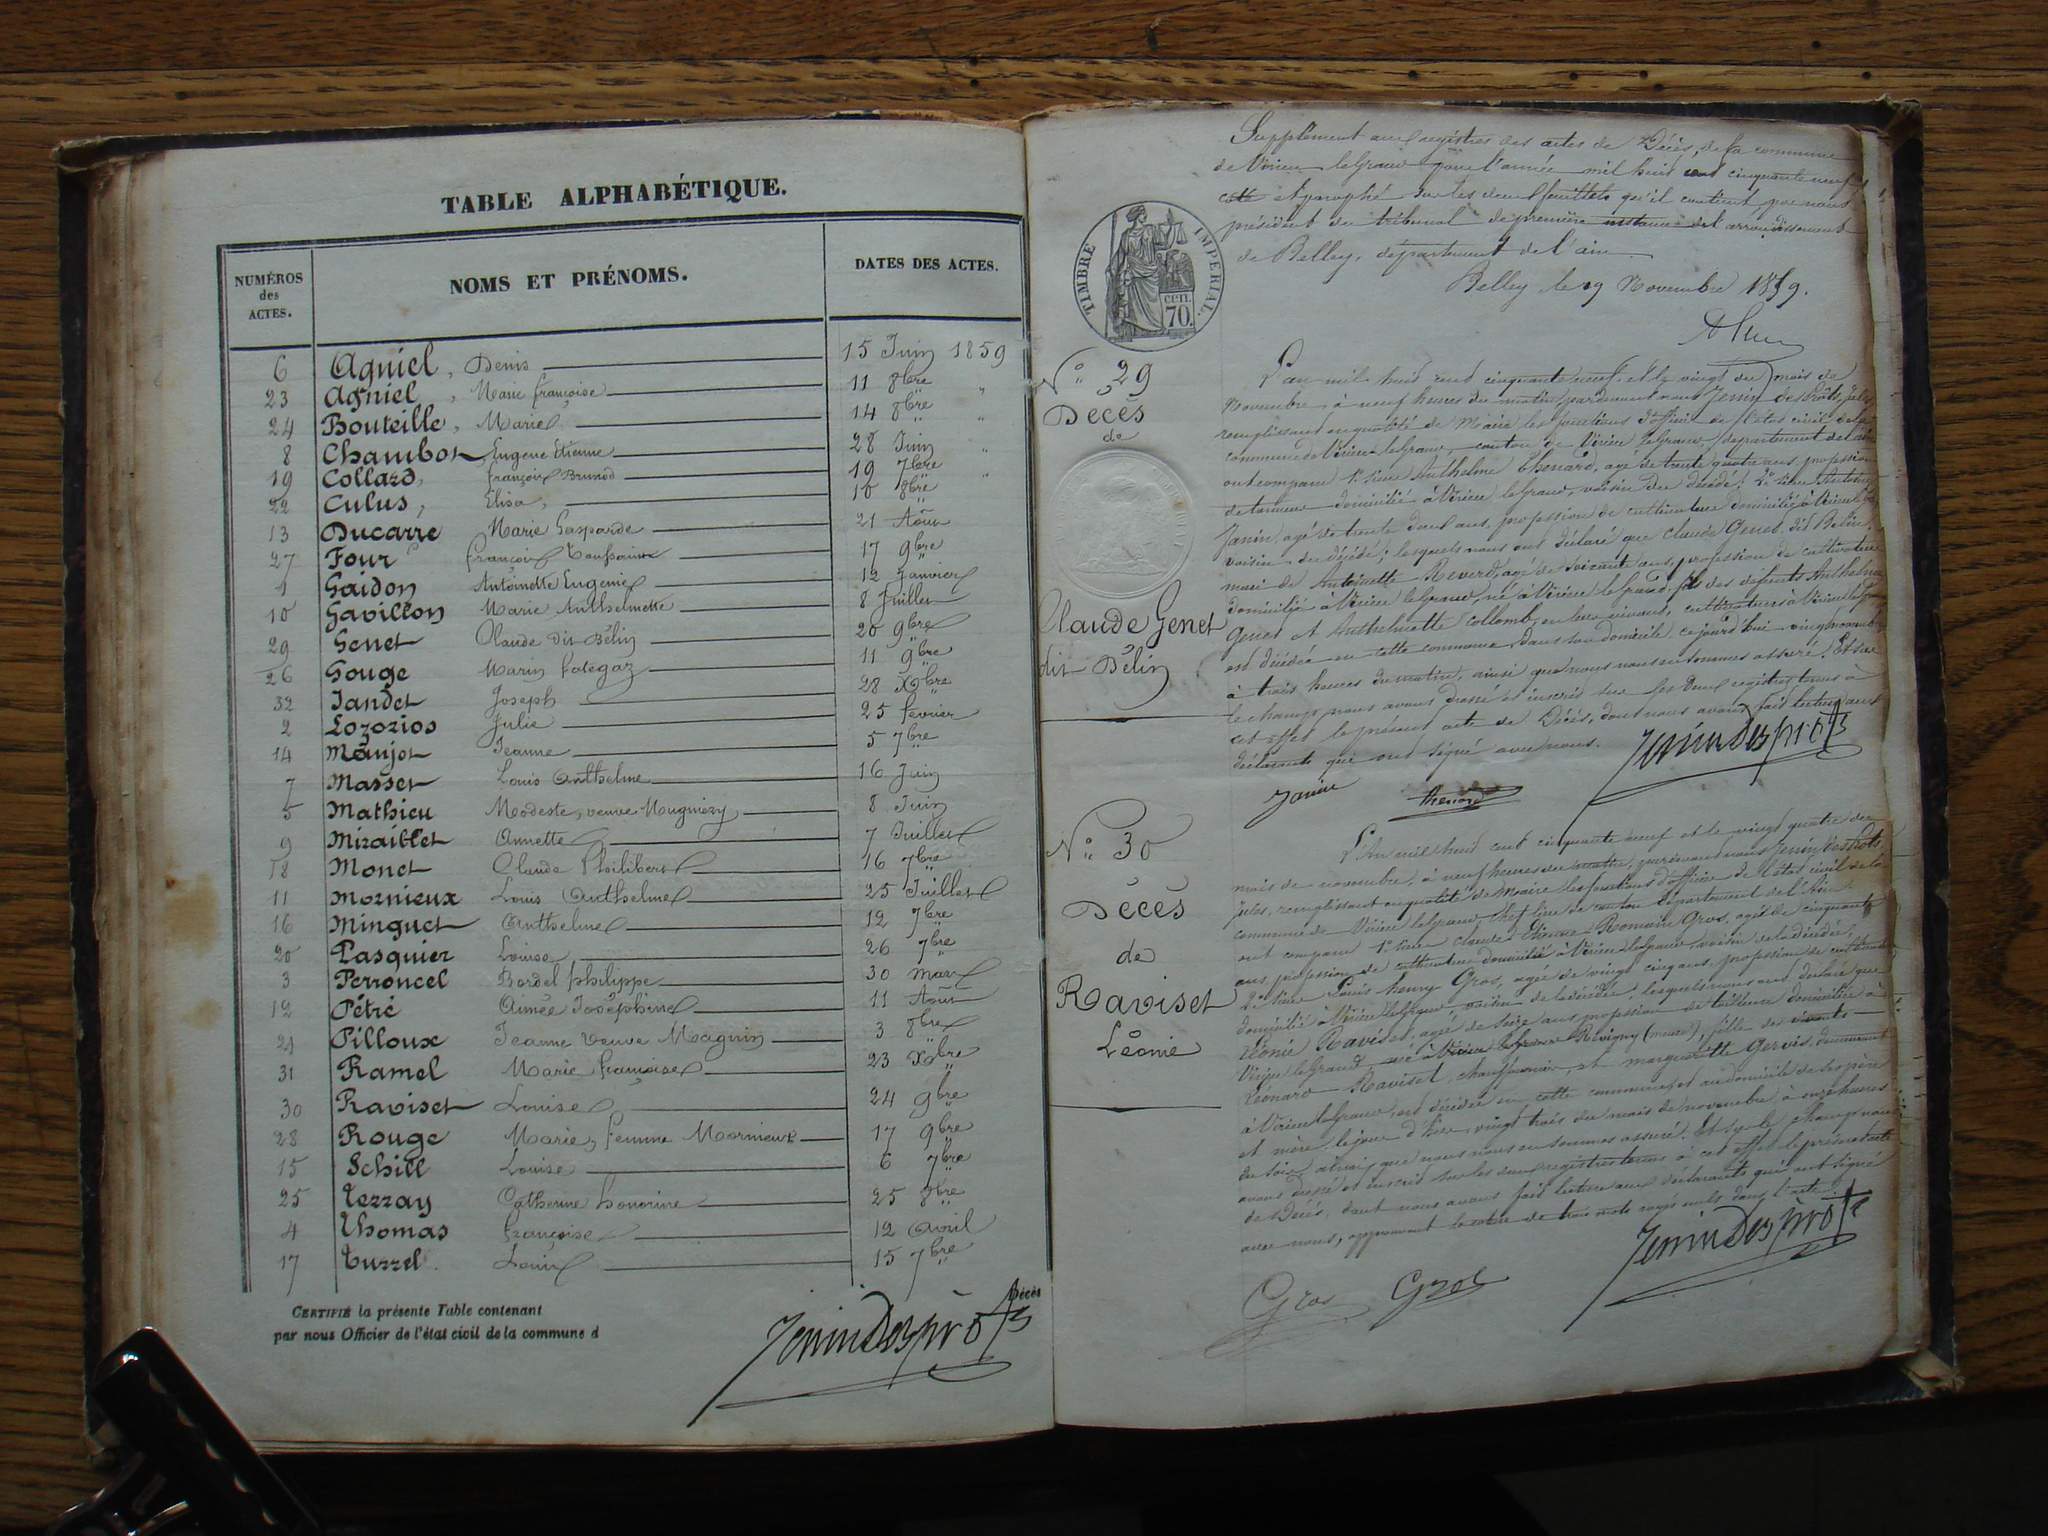 TABLE ALPHABÉTIQUE.
NUMÉROS des ACTES.
NOMS ET PRÉNOMS.
DATES DES ACTES.
6 Agniel, Denis 15 Juin 1859
23 Agniel, Marie françoise 11 8bre "
24 Bouteille, Marie 14 8bre "
8 Chambot Eugene Etienne 28 Juin "
19 Collard, françois Brunod 19 7bre "
22 Culus, Elisa, 10 8bre
13 Ducarre Marie Gasparde 21 Août
27 Four françois Toussaint 17 9bre
1 Gaidon Antoinette Eugenie 12 Janvier
10 Gavillon Marie Anthelmette 8 Juillet
29 Genet Claude dit Bélin 20 9bre
26 Gouge Marin 11 9bre
32 Jandet Joseph 28 Xbre
2 Lozozios Julie 25 fevrier
14 Monjot Jeanne 5 7bre
7 Masset Louis Anthelme 16 Juin
5 Mathieu Modeste, veuve Mugniery 8 Juin
9 Miraillet Annette 7 Juillet
18 Monet Claude Philibert 16 7bre
11 Mornieux Louis Anthelme 25 Juillet
16 Minguet Anthelme 12 7bre
20 Pasquier Louise 26 7bre
3 Perroncel Bordel philippe 30 mars
12 Pétré Aimée Joséphine 11 Août
21 Pilloux Jeanne veuve Magnin 3 8bre
31 Ramel Marie françoise 23 Xbre
30 Raviset Louise 24 9bre
28 Rouge Marie, femme Mornieux 17 9bre
15 Schill Louise 6 7bre
25 Terray Catherine honorine 25 8bre
4 Thomas françoise 12 Avril
17 Turrel Louis 15 7bre
CERTIFIÉ la présente Table contenant
Décès
par nous Officier de l'état civil de la commune d
Jenin Desprôts
Supplément aux registres des actes de Décès, de la commune
de Virieu le Grand pour l'année mil huit cent cinquante neuf
coté et paraphé sur les deux feuillets qu'il contient, par nous
président du tribunal de première instance de l'arrondissement
de Belley, département de l'ain.
Belley le 19 Novembre 1859.
TIMBRE IMPERIAL.
CENT. 70.
N° 29
Décès
de
Claude Genet
dit Bélin
L'an mil huit cent cinquante neuf et le vingt du mois de
Novembre, à neuf heures du matin, pardevant nous Jenin Desprôts, jules
remplissant en qualité de Maire les fonctions d'officier de l'état civil de la
commune de Virieu le Grand, canton de Virieu le Grand, département de l'ain
ont comparu 1° sieur Anthelme Thenard, agé de trente quatre ans, profession
de tanneur domicilié à Virieu le Grand, voisin du décédé; 2° sieur Antoine
Janin, agé de trente deux ans, profession de cultivateur domicilié à Virieu le Grand
voisin du décédé; lesquels nous ont déclaré que Claude Genet, dit Bélin,
mari de Antoinette Reverd, agé de soixante ans, profession de cultivateur
domicilié à Virieu le Grand, né à Virieu le Grand, fils des défunts Anthelme
Genet et Anthelmette Collomb, en leur vivant, cultivateurs à Virieu le Grand
est décédé en cette commune, dans son domicile, cejourd'hui vingt novembre
à trois heures du matin, ainsi que nous nous en sommes assuré. Et sur
le champ nous avons dressé et inscrit sur les deux registres tenus à
cet effet le présent acte de Décès, dont nous avons fait lecture aux
déclarants qui ont signé avec nous.
Jenin Desprôts
Janin
Thenard
N° 30
Décès
de
Raviset
Léonie
L'An mil huit cent cinquante neuf et le vingt quatre du
mois de novembre, à neuf heures du matin, pardevant nous Jenin Desprôts,
jules, remplissant en qualité de maire les fonctions d'officier de l'état civil de la
commune de Virieu le Grand, chef lieu de canton département de l'Ain
ont comparu 1° sieur Claude Etienne Romain Gros, agé de cinquante
ans, profession de cultivateur domicilié à Virieu le Grand, voisin de la décédée;
2° sieur Louis henry Gros, agé de vingt cinq ans, profession de cultivateur
domicilié à Virieu le Grand, voisin de la décédée, lesquels nous ont déclaré que
Léonie Raviset, agée de seize ans profession de tailleuse domiciliée à
Virieu le Grand, née à Revigny (meuse), fille de vivants
Léonard Raviset, chaufournier et marguerite Gervis, demeurant
à Virieu le Grand, est décédée en cette commune et au domicile de ses père
et mère, le jour d'hier vingt trois du mois de novembre, à onze heures
du soir, ainsi que nous nous en sommes assuré. Et sur le champ nous
avons dressé et inscrit sur les deux registres tenus à cet effet le présent acte
de Décès, dont nous avons fait lecture aux déclarants qui ont signé
avec nous, approuvant la rature de trois mots rayés nuls dans l'acte.
Jenin Desprôts
Gros Gros